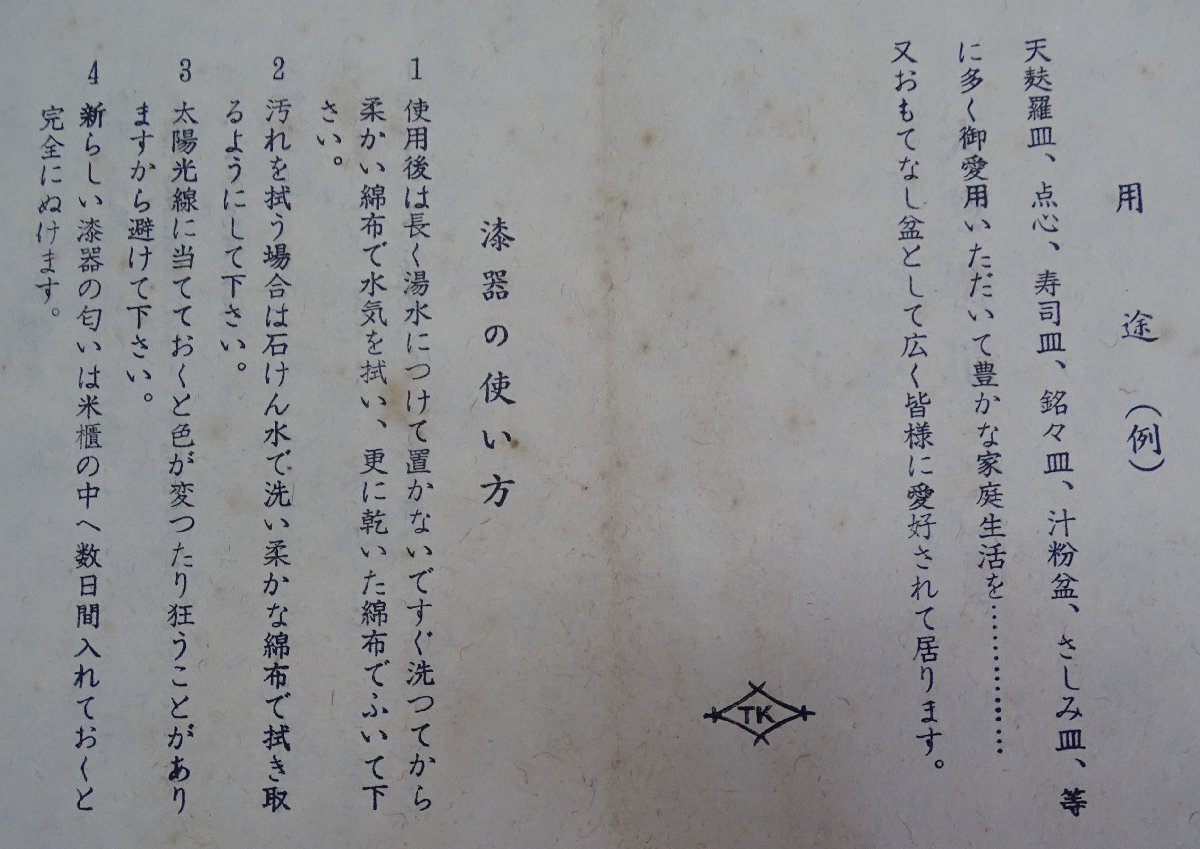 用途(例)
天麩羅皿、点心、寿司皿、銘々皿、汁粉盆、さしみ皿、等
に多く御愛用いただいて豊かな家庭生活を……………
又おもてなし盆として広く皆様に愛好されて居ります。
TK
漆器の使い方
1 使用後は長く湯水につけて置かないですぐ洗つてから
柔かい綿布で水気を拭い、更に乾いた綿布でふいて下
さい。
2 汚れを拭う場合は石けん水で洗い柔かな綿布で拭き取
るようにして下さい。
3 太陽光線に当てておくと色が変つたり狂うことがあり
ますから避けて下さい。
4 新らしい漆器の匂いは米櫃の中へ数日間入れておくと
完全にぬけます。